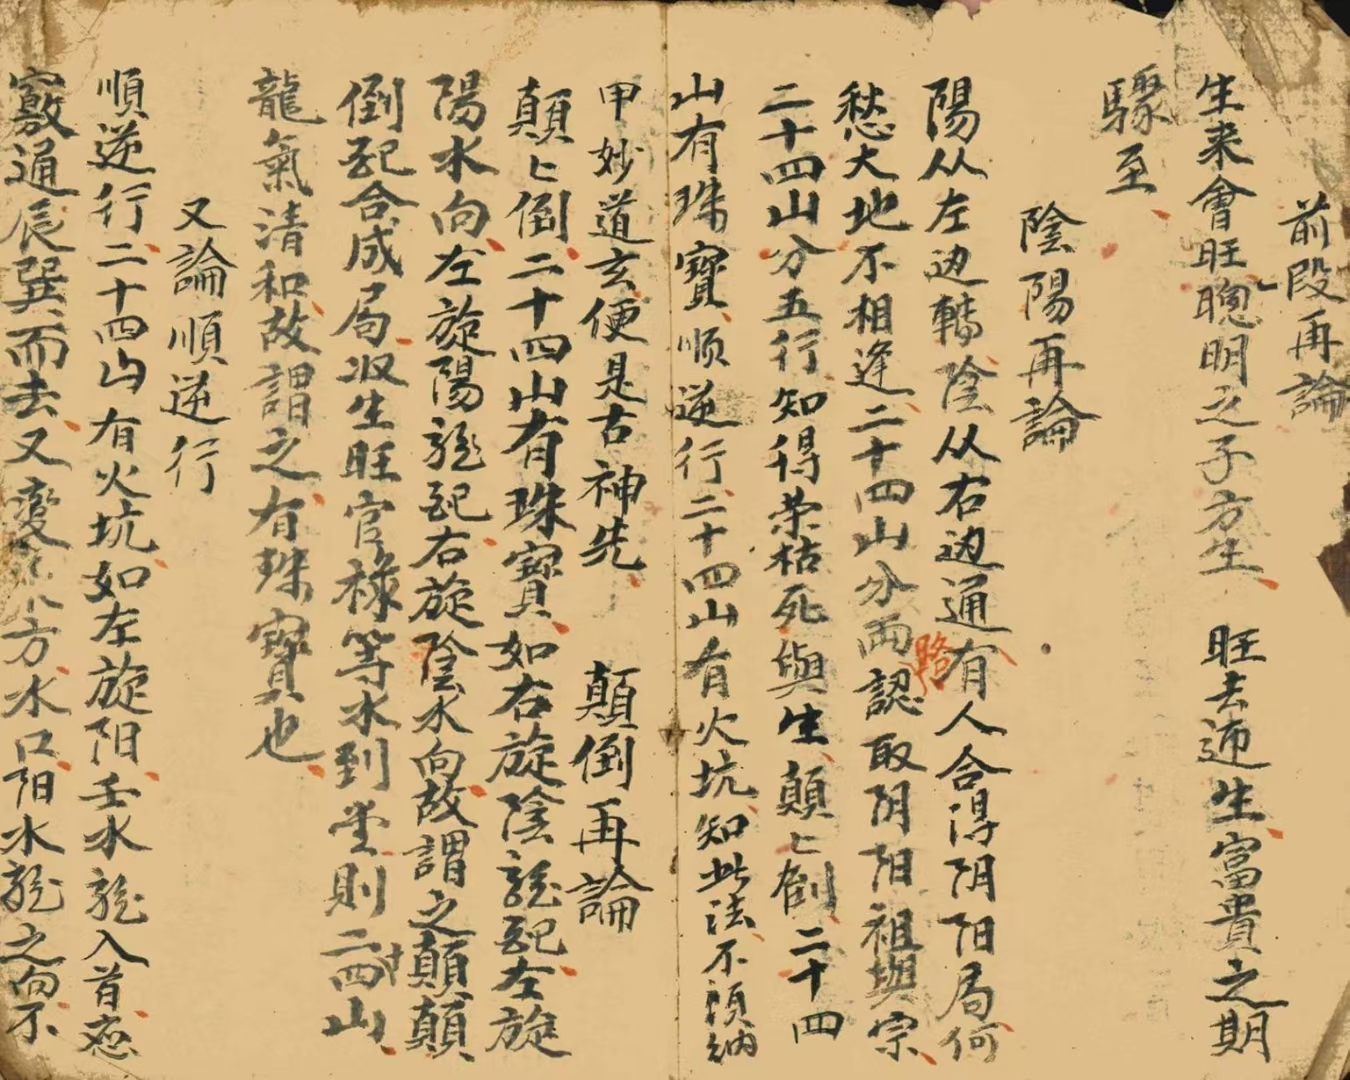 前段再論
生来會旺聰明之子方生　旺去迎生富貴之期
驟至
陰陽再論
陽从左边轉陰从右边通有人合得阴阳局何
愁大地不相逢二十四山分両路認取阴阳祖與宗
二十四山分五行知得荣枯死與生顛〻倒二十四
山有珠寶順逆行二十四山有火坑知此法不須納
甲妙道玄便是古神先　顛倒再論
顛〻倒二十四山有珠寶如右旋陰龍配左旋
陽水向左旋陽龍配右旋陰水向故謂之顛顛
倒配合成局収生旺官祿等水到堂則二十四山
龍氣清和故謂之有珠寶也
又論順逆行
順逆行二十四山有火坑如左旋阳壬水龍入首応
竅通辰巽而去又方水口阳水龍之向不